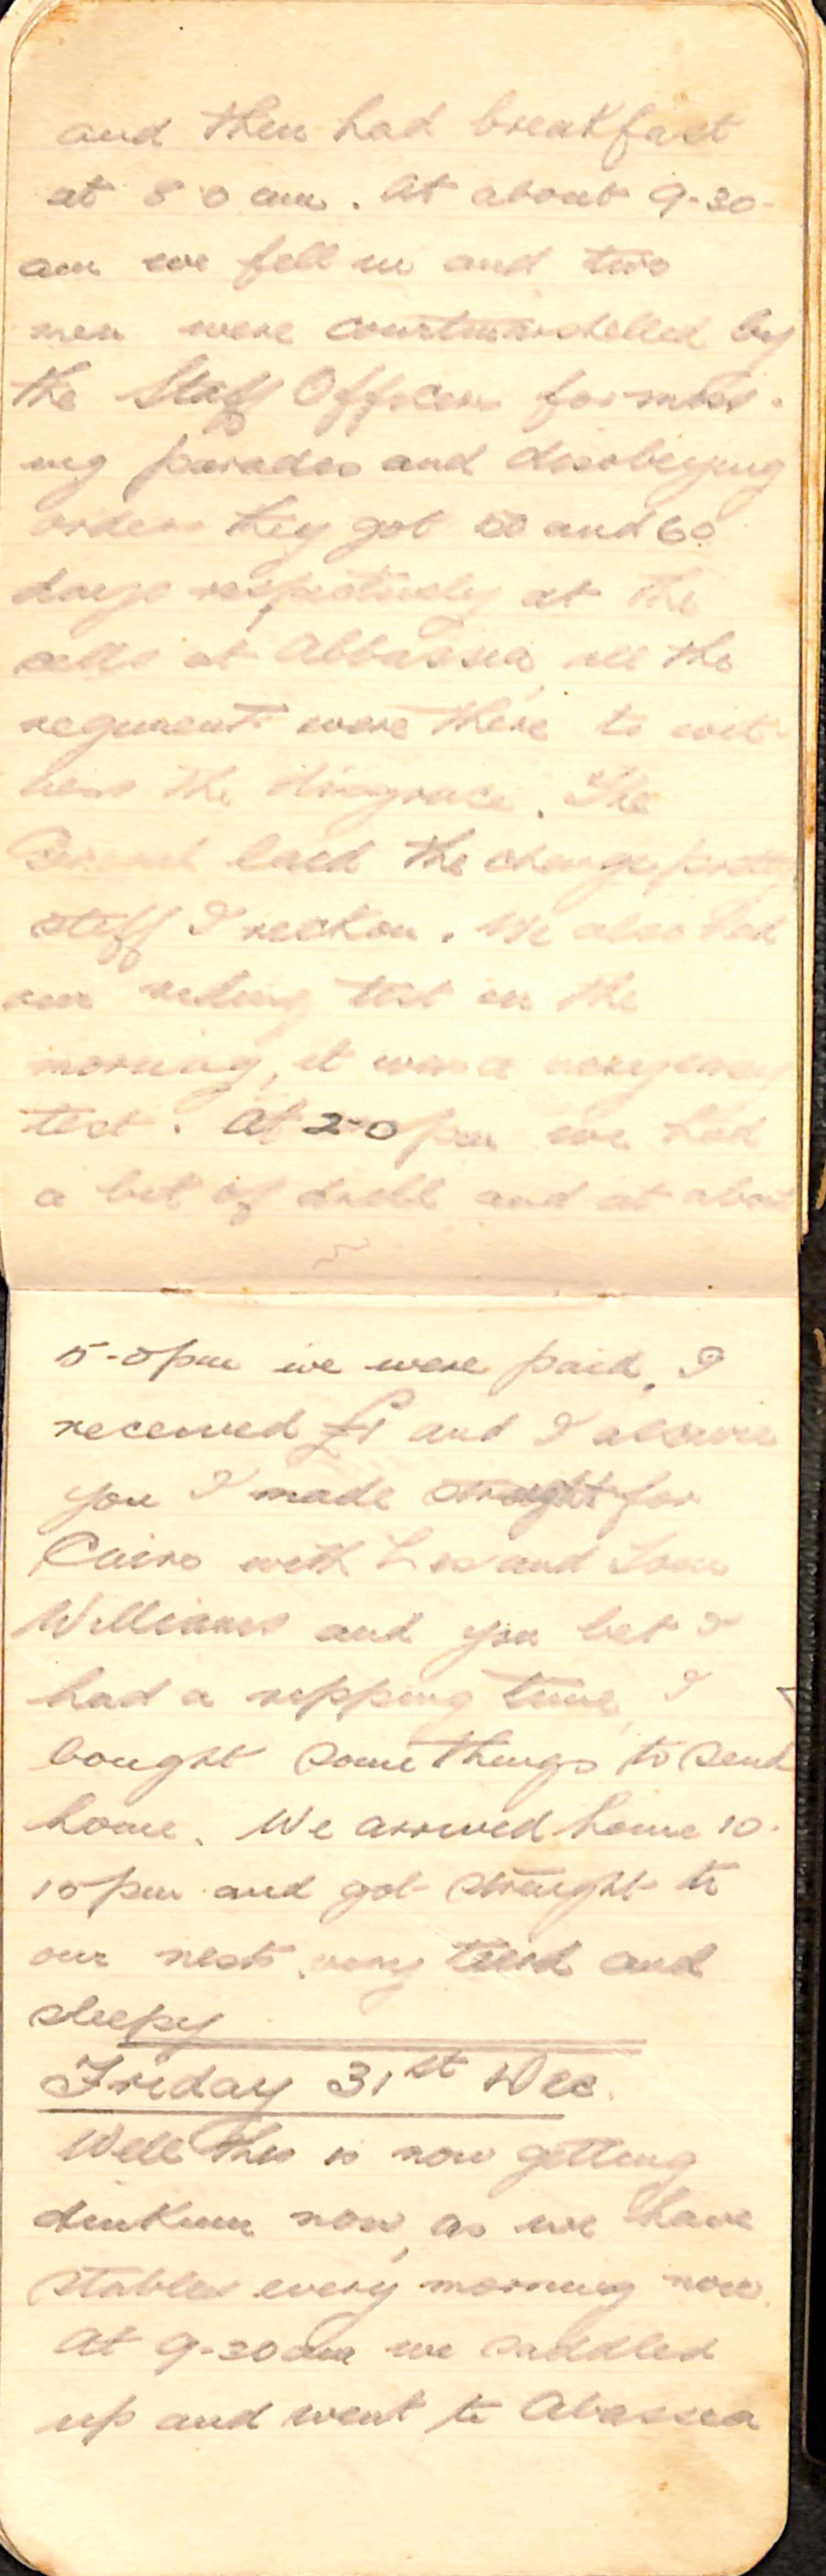 and then had breakfast
at 8 0 am. At about 9-30-
am we fell in and two
men were courtmarshelled by
the Staff Officers for miss-
ing parades and disobeying
orders they got and 60
days respectively at the
cells at Abbassea, all the
regiment were there to wit-
ness the disgrace. The
laid the charge pretty
stiff I reckon. We also had
our riding test in the
morning, it was a very easy
test. At 2-0 pm we had
a bit of drill and at about
5-0 pm we were paid, I
received £1 and I assure
you I made straight for
Cairo with Les and Tom
Williams and you bet I
had a ripping time, I
bought some things to send
home. We arrived home 10-
15 pm and got straight to
our nests, very tired and
sleepy
Friday 31st Dec.
Well this is now getting
dinkum now, as we have
stables every morning now.
At 9-30 am we saddled
up and went to Abassea